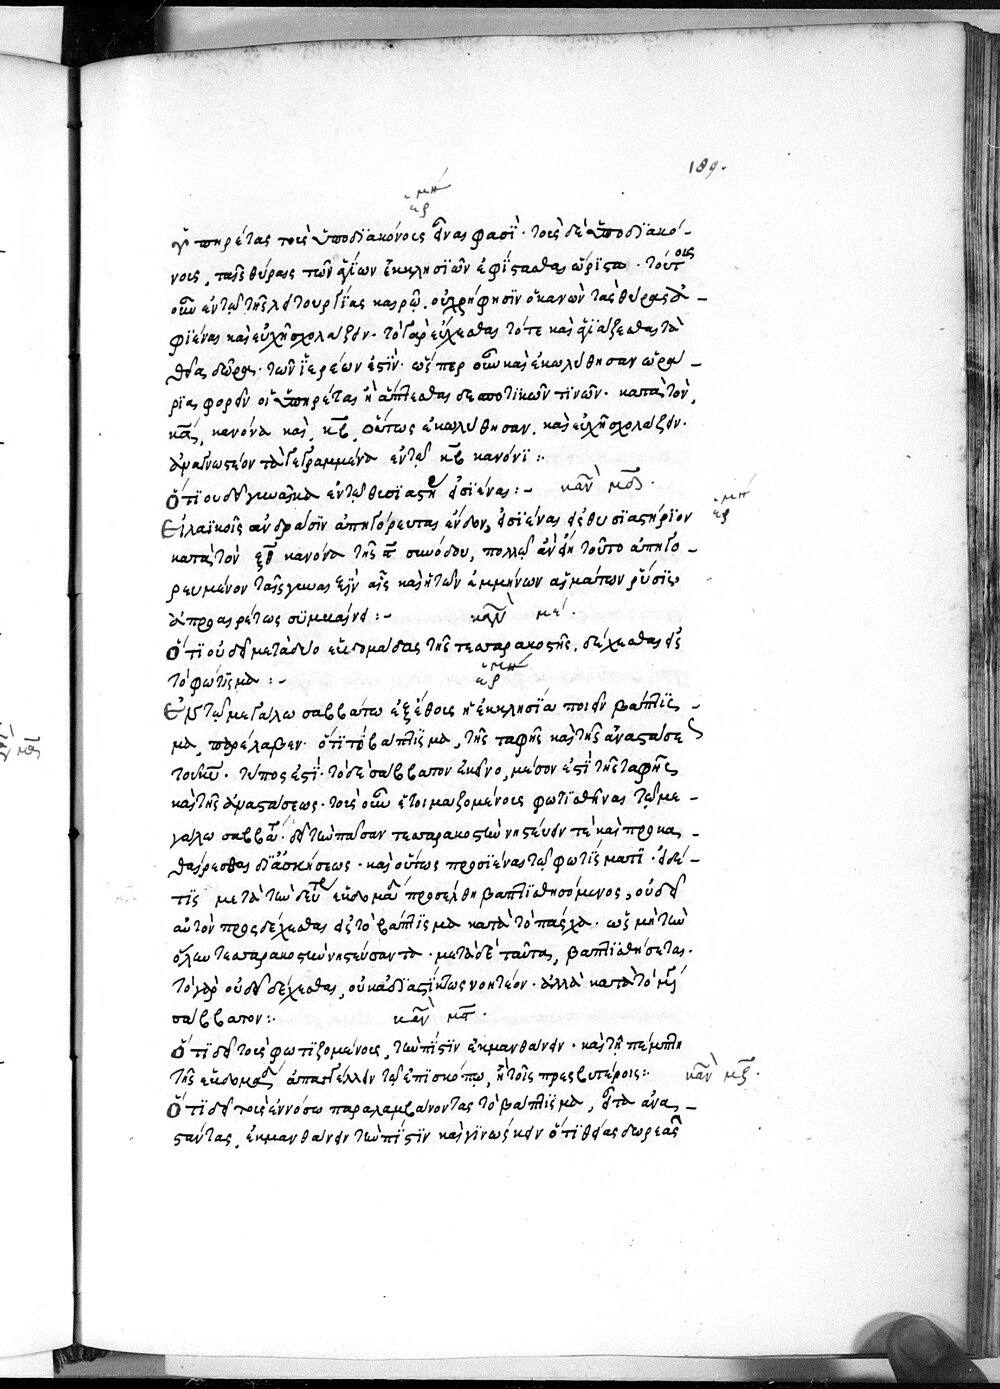 189.
ἑρμη
ὑπηρέτας τοὺς ὑποδιακόνους εἶναι φασί· τοὺς δὲ ὑποδιακό-
νους, ταῖς θύραις τῶν ἁγίων ἐκκλησιῶν ἐφίστασθαι ὥρισται. τούτοις
οὖν ἐν τῷ τῆς λειτουργίας καιρῷ, οὐ χρή φησιν ὁ κανὼν τὰς θύρας ἀ-
φιέναι καὶ εὐχῇ σχολάζειν. τὸ γὰρ εὔχεσθαι τότε καὶ ἁγιάζεσθαι τὰ
θεῖα δῶρα, τῶν ἱερέων ἐστίν. ὥσπερ οὖν καὶ ἐκωλύθησαν ὡρά-
ριον φορεῖν οἱ ὑπηρέται ἢ ἅπτεσθαι δεσποτικῶν τινῶν· κατὰ τὸν
κα, κανόνα καὶ κβ, οὕτως ἐκωλύθησαν, καὶ εὐχῇ σχολάζειν.
ἀναγνωστέον τὰ γεγραμμένα ἐν τῷ κβ κανόνι:
Ὅτι οὐ δεῖ γυναῖκα ἐν τῷ θυσιαστηρίῳ εἰσιέναι:- κανὼν μδ.
Εἰ λαϊκοῖς ἀνδράσιν ἀπηγόρευται ἔνδον εἰσιέναι εἰς θυσιαστήριον
κατὰ τὸν ξθ κανόνα τῆς ϛ συνόδου, πολλῷ ἂν εἴη τοῦτο ἀπηγο-
ρευμένον ταῖς γυναιξὶν αἷς καὶ ἡ τῶν ἐμμήνων αἱμάτων ῥύσις
ἀπροαιρέτως συμβαίνει:- κανὼν με.
Ὅτι οὐ δεῖ μετὰ δύο ἑβδομάδας τῆς τεσσαρακοστῆς, δέχεσθαι εἰς
τὸ φώτισμα:- ἑρμη
Ἐν τῷ μεγάλῳ σαββάτῳ ἐξ ἔθους ἡ ἐκκλησία ποιεῖν βάπτισ-
μα, παρέλαβεν· ὅτι τὸ βάπτισμα, τῆς ταφῆς καὶ τῆς ἀναστάσε
τοῦ κυ. τύπος ἐστί· τὸ δὲ σάββατον ἐκεῖνο, μέσον ἐστὶ τῆς ταφῆς
καὶ τῆς ἀναστάσεως· τοὺς οὖν ἑτοιμαζομένους φωτισθῆναι τῷ με-
γάλῳ σαββάτ. δεῖ τὴν πᾶσαν τεσσαρακοστὴν νηστεύειν τὲ καὶ προκα-
θαίρεσθαι δι' ἀσκήσεως· καὶ οὕτως προσιέναι τῷ φωτίσματι. εἰ δέ-
τις μετὰ τὴν δευτ ἑβδομάδ προσέλθῃ βαπτισθησόμενος, οὐ δεῖ
αὐτὸν προσδέχεσθαι εἰς τὸ βάπτισμα κατὰ τὸ πάσχα· ὡς μὴ τὴν
ὅλην τεσσαρακοστὴν νηστεύσαντα· μετὰ δὲ ταῦτα, βαπτισθήσεται.
τὸ γὰρ οὐ δεῖ δέχεσθαι, οὐκ ἀδιαστίκτως νοητέον· ἀλλὰ κατὰ τὸ μέγ
σάββατον:. κανὼν μϛ.
Ὅτι δεῖ τοὺς φωτιζομένους, τὴν πίστιν ἐκμανθάνειν· καὶ τῇ πέμπτῃ
τῆς ἑβδομάδ ἀπαγγέλλειν τῷ ἐπισκόπῳ, ἢ τοῖς πρεσβυτέροις: κανὼν μζ.
Ὅτι δεῖ τοὺς ἐν νόσῳ παραλαμβάνοντας τὸ βάπτισμα, εἶτα ἀνα-
στάντας, ἐκμανθάνειν τὴν πίστιν καὶ γινώσκειν ὅτι θείας δωρεᾶς